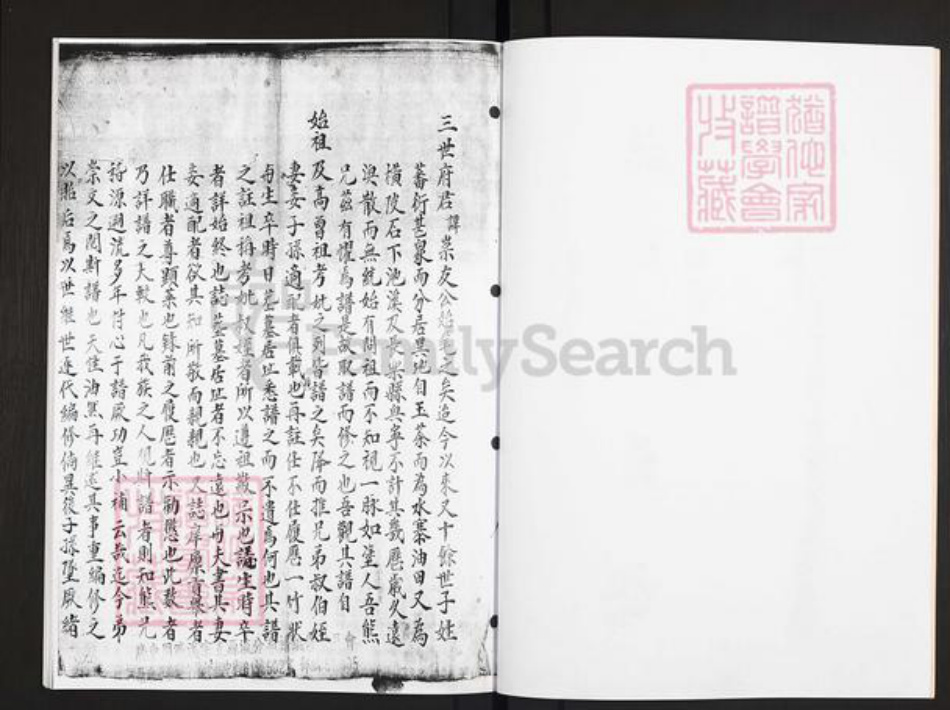 三世府君諱崇友公始毛之矣迨今以來又十餘世子姓
蕃衍甚眾而分居異地自玉茶而為水寨油田又為
横陂石下池溪及長樂縣與寧不計其幾歷歲久遠
渙散而無統始有問祖而不知視一脉如塗人吾熊
兄茲有懼焉譜是故取譜而修之也吾觀其譜自
始祖及高曾祖考妣之列皆譜之矣降而推兄弟叔伯姪
妻妾子孫適配者俱載也再註仕不仕履歷一竹狀
毎生卒時日塟墓居址悉譜之而不遺為何也其譜
之註祖稱考妣叔姪者所以遵祖敬宗也譜生時卒
者詳始終也誌塟墓居址者不忘遠也毋夫書其妻
妾適配者欲其知所敬而親親也又誌庠廩貢舉者
仕職者尊顯榮也錄前之履歷者示勸懲也此数者
乃詳譜之大較也凡我族之人覌斯譜者則知熊兄
待源遡流多年付心于譜厥功豈小補云哉迄今弟
崇文之閲斯譜也天佳油黑再能述其事重編修之
以貽后焉以世継世逐代編修倘異後子孫墜厥緒
譜學會
藏
FamilySearch